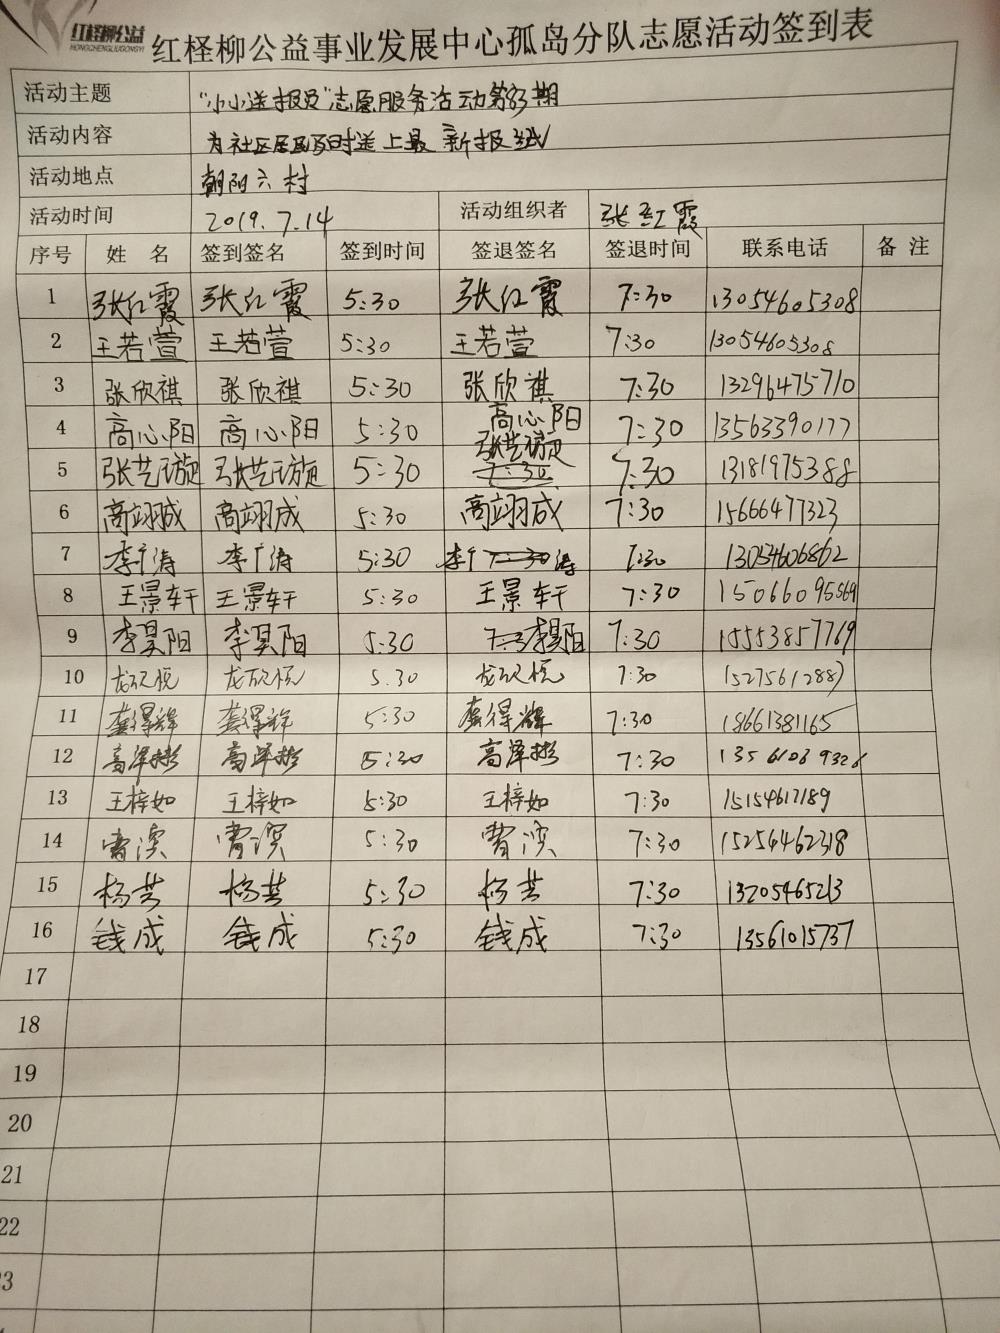 红柽柳公益
HONGCHENGLIUGONGYI
红柽柳公益事业发展中心孤岛分队志愿活动签到表
活动主题 "小小送报员"志愿服务活动第83期
活动内容 为社区居民及时送上最新报纸
活动地点 朝阳六村
活动时间 2019.7.14 活动组织者 张红霞
序号 姓名 签到签名 签到时间 签退签名 签退时间 联系电话 备注
1 张红霞 张红霞 5:30 张红霞 7:30 13054605308
2 王若萱 王若萱 5:30 王若萱 7:30 13054605308
3 张欣祺 张欣祺 5:30 张欣祺 7:30 13296475710
4 高心阳 高心阳 5:30 高心阳 7:30 13563390177
5 张艺璇 张艺璇 5:30 张艺璇 7:30 13181975388
6 高翊成 高翊成 5:30 高翊成 7:30 15666477323
7 李广涛 李广涛 5:30 李广涛 7:30 13054606862
8 王景轩 王景轩 5:30 王景轩 7:30 15066095569
9 李昊阳 李昊阳 5:30 李昊阳 7:30 15553857769
10 5.30 7:30 15275612887
11 龚得辉 龚得辉 5:30 龚得辉 7:30 18661381165
12 高泽彬 高泽彬 5:30 高泽彬 7:30 13561039326
13 王梓如 王梓如 5:30 王梓如 7:30 15154617189
14 曹滨 曹滨 5:30 曹滨 7:30 15254462318
15 杨芸 杨芸 5:30 杨芸 7:30 13205465213
16 钱成 钱成 5:30 钱成 7:30 13561015737
17
18
19
20
21
22
3